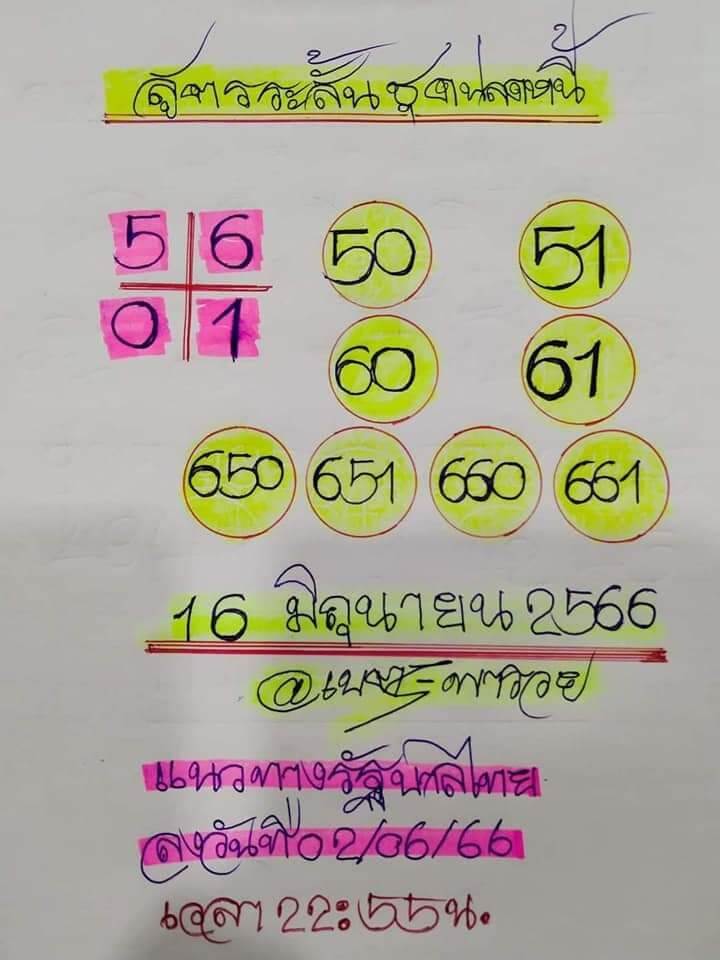 สูตรระสั้นชุดปลดหนี้
5 6
0 1
50 51
60 61
650 651 660 661
16 มิถุนายน 2566
แนวทางรัฐบาลไทย
ลงวันที่ 02/06/66
เวลา 22:55น.